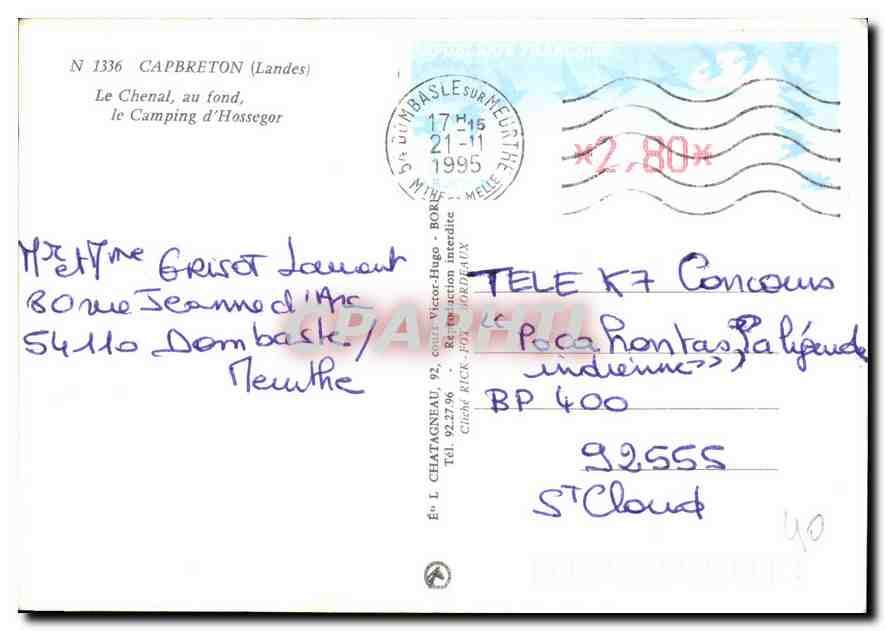 N 1336 CAPBRETON (Landes)
Le Chenal, au fond,
le Camping d'Hossegor
REPUBLIQUE FRANÇAISE
54 DOMBASLE SUR MEURTHE
17H15
21-11
1995
MTHE MELLE
*2,80*
Mr et Mme GRISOT Laurent
80 rue Jeanne d'Arc
54110 Dombasle/
Meurthe
Éts L CHATAGNEAU, 92, cours Victor-Hugo - BORDEAUX
Tél. 92.27.96 - Reproduction interdite
Cliché RICK-FOY BORDEAUX
TELE K7 Concours
"Pocahontas, la légende
indienne"
BP 400
92555
St Cloud
40
CPAPHIL